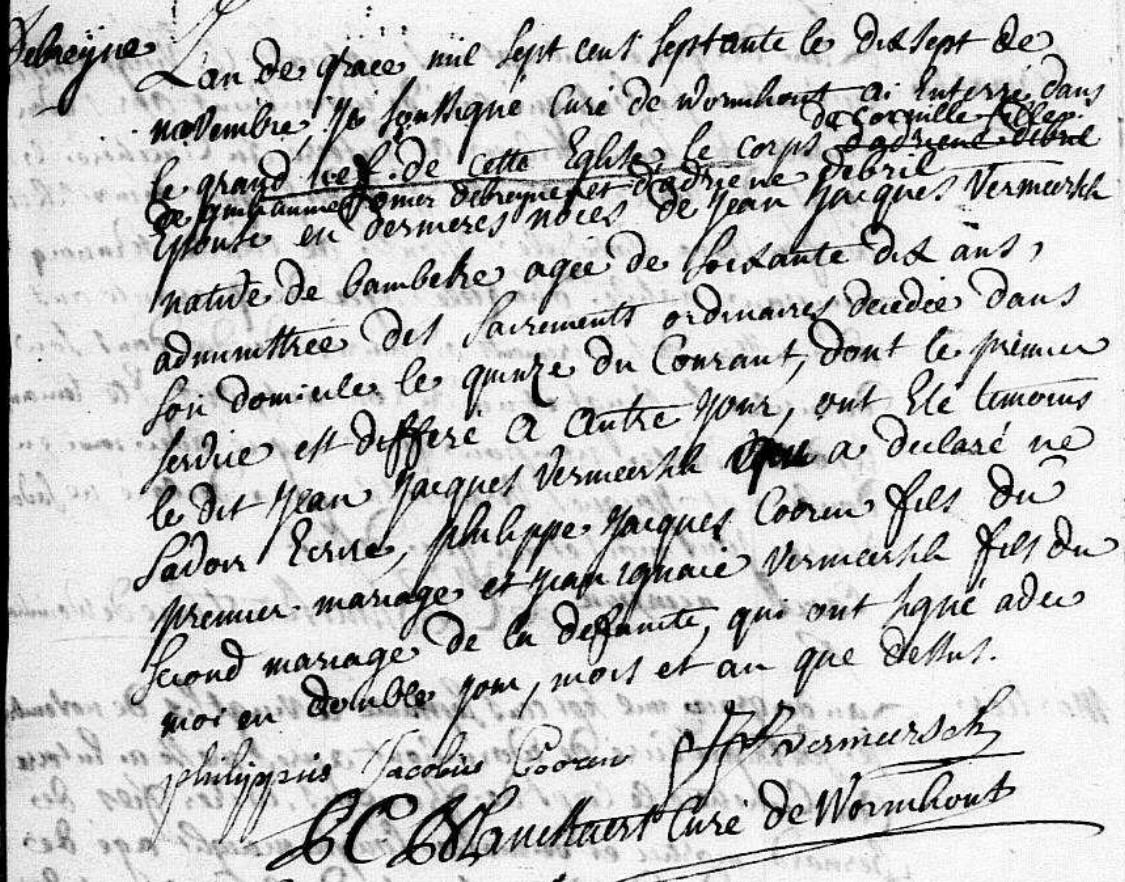 Debreyne
L'an de grace mil sept cent septante le dixsept de
novembre, Je soussigné Curé de Wormhout ai Enterré dans
de Cornille fille
le grand nef de cette Eglise, le corps d'adriene debril
de guilliaume omer debreyne et d'adriene debril
Epouse en dernieres noces de Jean Jacques Vermeersch
native de bambeke agée de soixante dix ans,
administree des sacrements ordinaires decedee dans
son domicile le quinze du Courant, dont le premier
service est differé a autre jour, ont Eté temoins
le dit Jean Jacques Vermeersch qui a declaré ne
savoir Ecrire, philippe Jacques Cooren fils du
premier mariage et jean ignace Vermeersch fils du
second mariage de la defunte, qui ont signé avec
moi en double jour, mois et an que dessus.
philippus Jacobus Cooren J J vermeersch
Curé de Wormhout